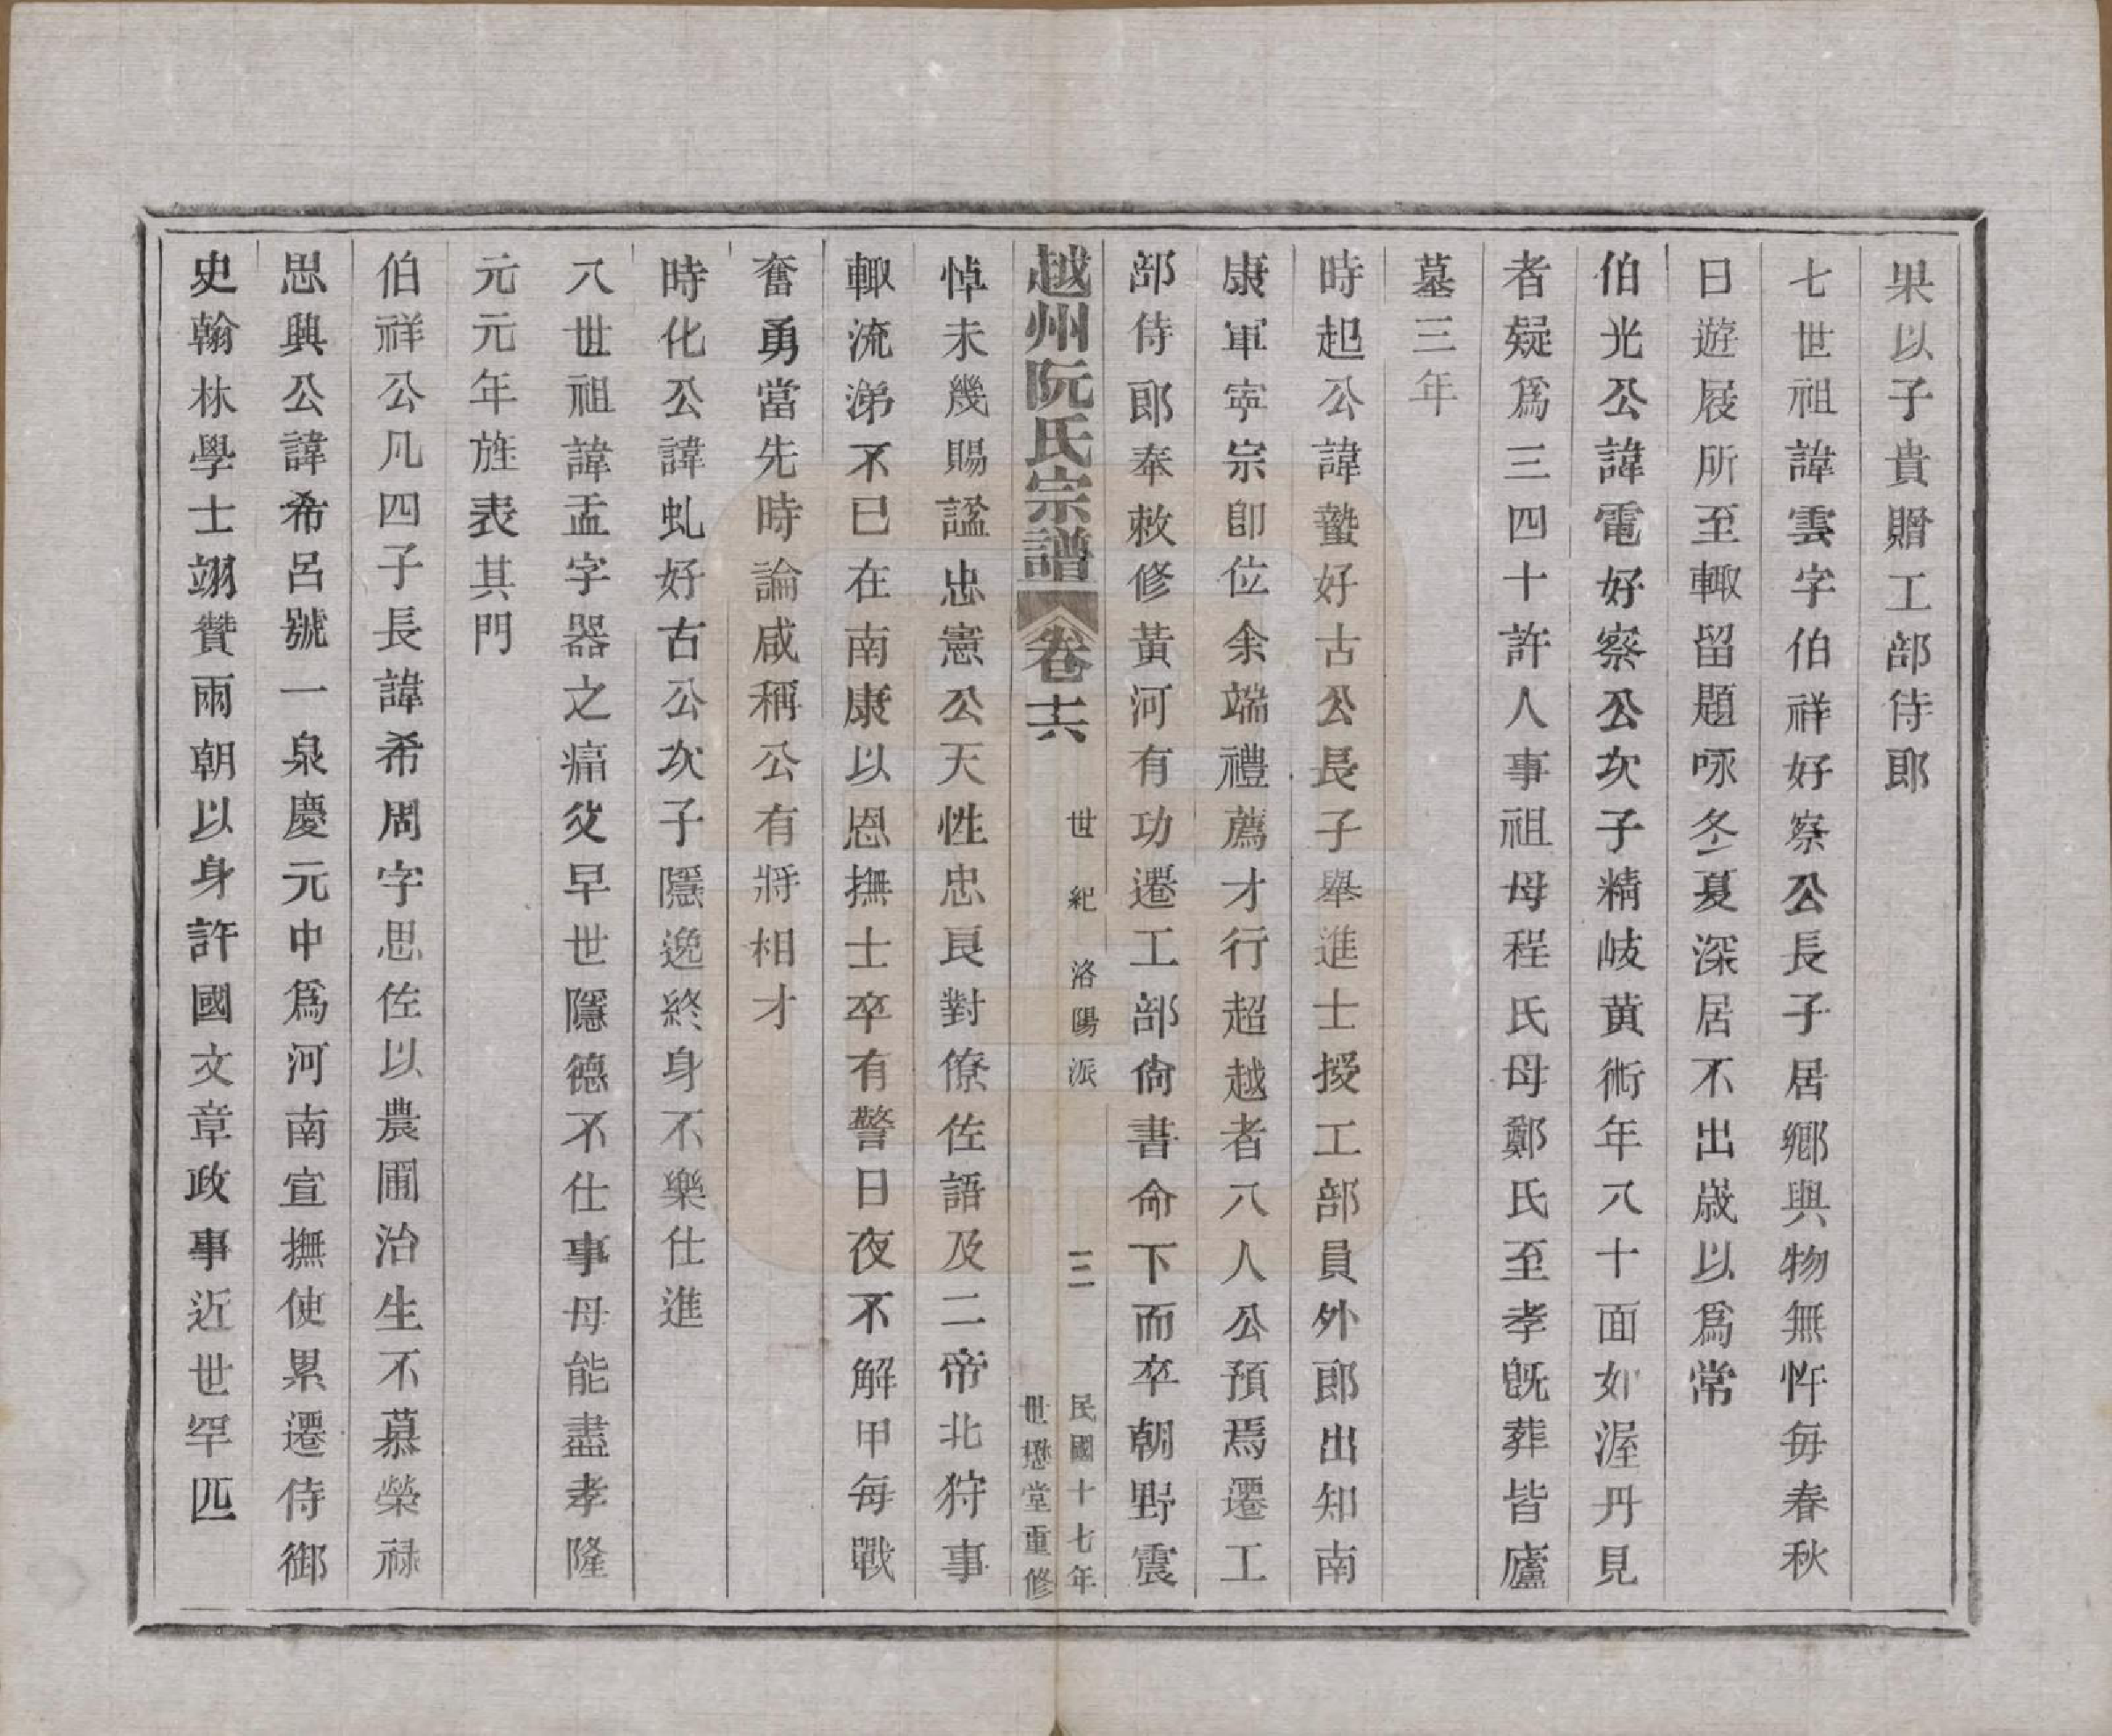 果以子貴贈工部侍郎
七世祖諱雲字伯祥好察公長子居鄉與物無忤每春秋
日遊屐所至輙留題咏冬夏深居不出歲以爲常
伯光公諱電好察公次子精岐黃術年八十面如渥丹見
者疑爲三四十許人事祖母程氏母鄭氏至孝旣葬皆廬
墓三年
時起公諱蟄好古公長子舉進士授工部員外郎出知南
康軍寧宗卽位余端禮薦才行超越者八人公預焉遷工
部侍郎奉敕修黃河有功遷工部尙書命下而卒朝野震
越州阮氏宗譜 卷十六 世紀 洛陽派 三 民國十七年 世懋堂重修
悼未幾賜諡忠憲公天性忠良對僚佐語及二帝北狩事
輙流涕不已在南康以恩撫士卒有警日夜不解甲每戰
奮勇當先時論咸稱公有將相才
時化公諱虬好古公次子隱逸終身不樂仕進
八世祖諱孟字器之痛父早世隱德不仕事母能盡孝隆
元元年旌表其門
伯祥公凡四子長諱希周字思佐以農圃治生不慕榮祿
思興公諱希呂號一泉慶元中爲河南宣撫使累遷侍御
史翰林學士翊贊兩朝以身許國文章政事近世罕匹